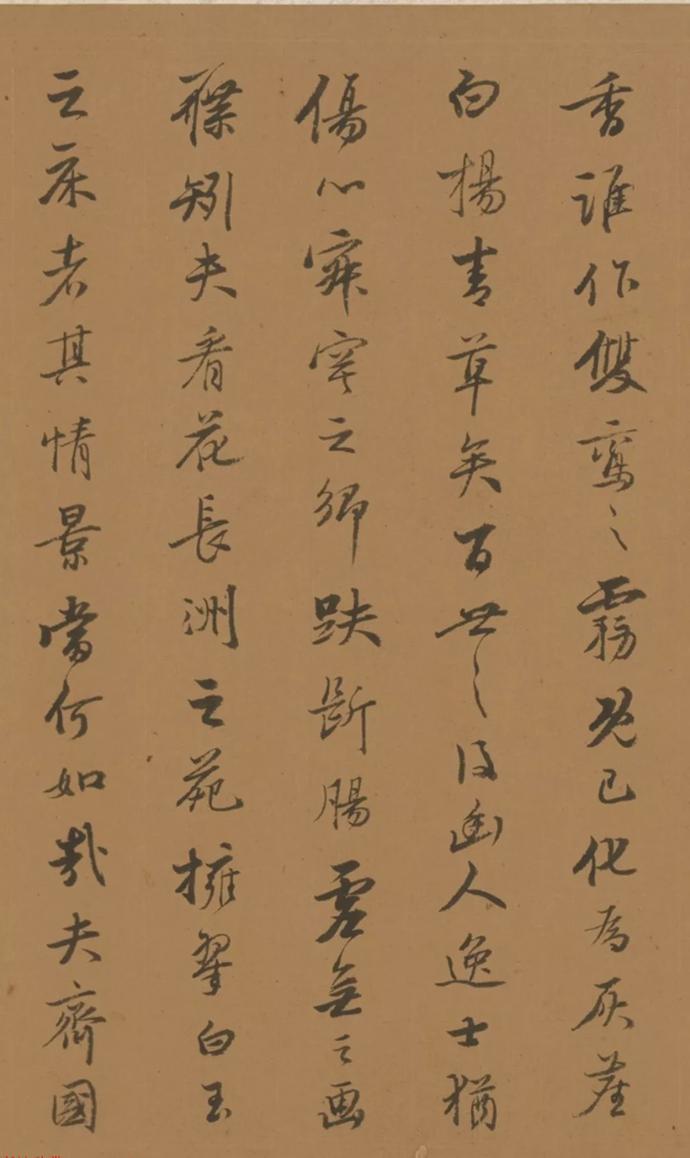 香誰作雙鸞之霧既已化為灰塵
白楊青草矣百世之後幽人逸士猶
傷心寂之趺斷腸虛無之画
屧矧夫看花長洲之苑擁翠白玉
之床者其情景當何如哉夫齊國